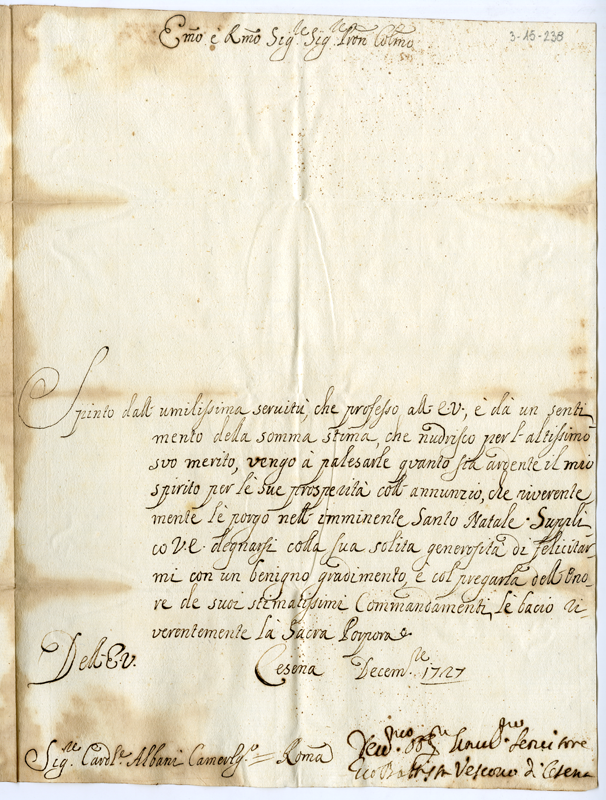 3-15-238
Emo e Rmo Sigre Sigre Pron Colmo
Spinto dall umilissima servitù, che professo all EV, è dà un senti
mento della somma stima, che nudrisco per l'altissimo
suo merito, vengo à palesarle quanto sia ardente il mio
spirito per lè sue prosperità coll annunzio, che riverente
mente lè porgo nell imminente Santo Natale. Suppli
co V.E. degnarsi colla sua solita generosità di felicitar
mi con un benigno gradimento, e col pregarla dell Ono-
re de suoi stimatissimi Commandamenti, lè bacio ri-
verentemente la Sacra Porpora
Dell EV.
Cesena Decemre 1727
Sigre Cardle Albani Camerlgo = Roma
Servitore
Gio Battista Vescovo di Cesena